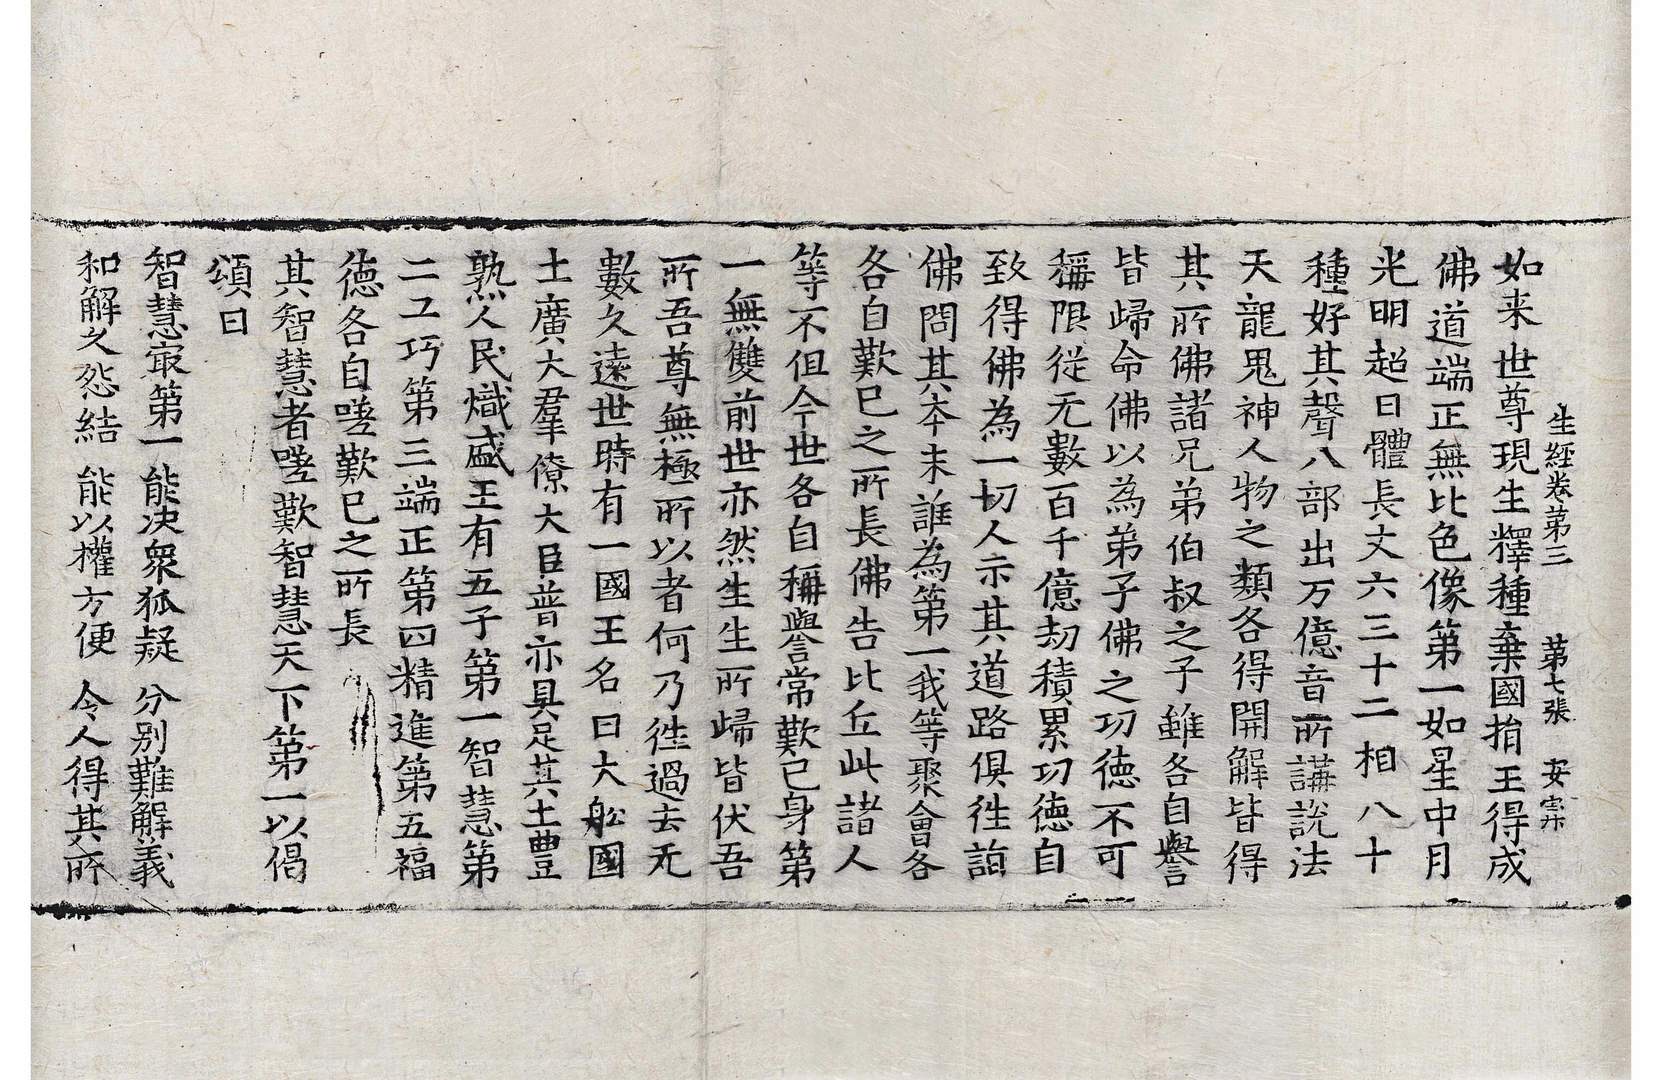 生經卷第三　第七張　安
如来世尊現生釋種棄國捐王得成
佛道端正無比色像第一如星中月
光明超日體長丈六三十二相八十
種好其聲八部出万億音所講說法
天龍鬼神人物之類各得開解皆得
其所佛諸兄弟伯叔之子雖各自譽
皆歸命佛以為弟子佛之功德不可
稱限從无數百千億劫積累功德自
致得佛為一切人示其道路俱徃詣
佛問其夲末誰為第一我等聚會各
各自歎己之所長佛告比丘此諸人
等不但今世各自稱譽常歎己身第
一無雙前世亦然生生所歸皆伏吾
所吾尊無極所以者何乃徃過去无
數久遠世時有一國王名曰大舩國
土廣大羣僚大臣普亦具足其土豊
熟人民熾盛王有五子第一智慧第
二工巧第三端正第四精進第五福
德各自嗟歎己之所長
其智慧者嗟歎智慧天下第一以偈
頌曰
智慧㝡第一　能决衆狐疑　分別難解義
和解久怨結　能以權方便　令人得其所